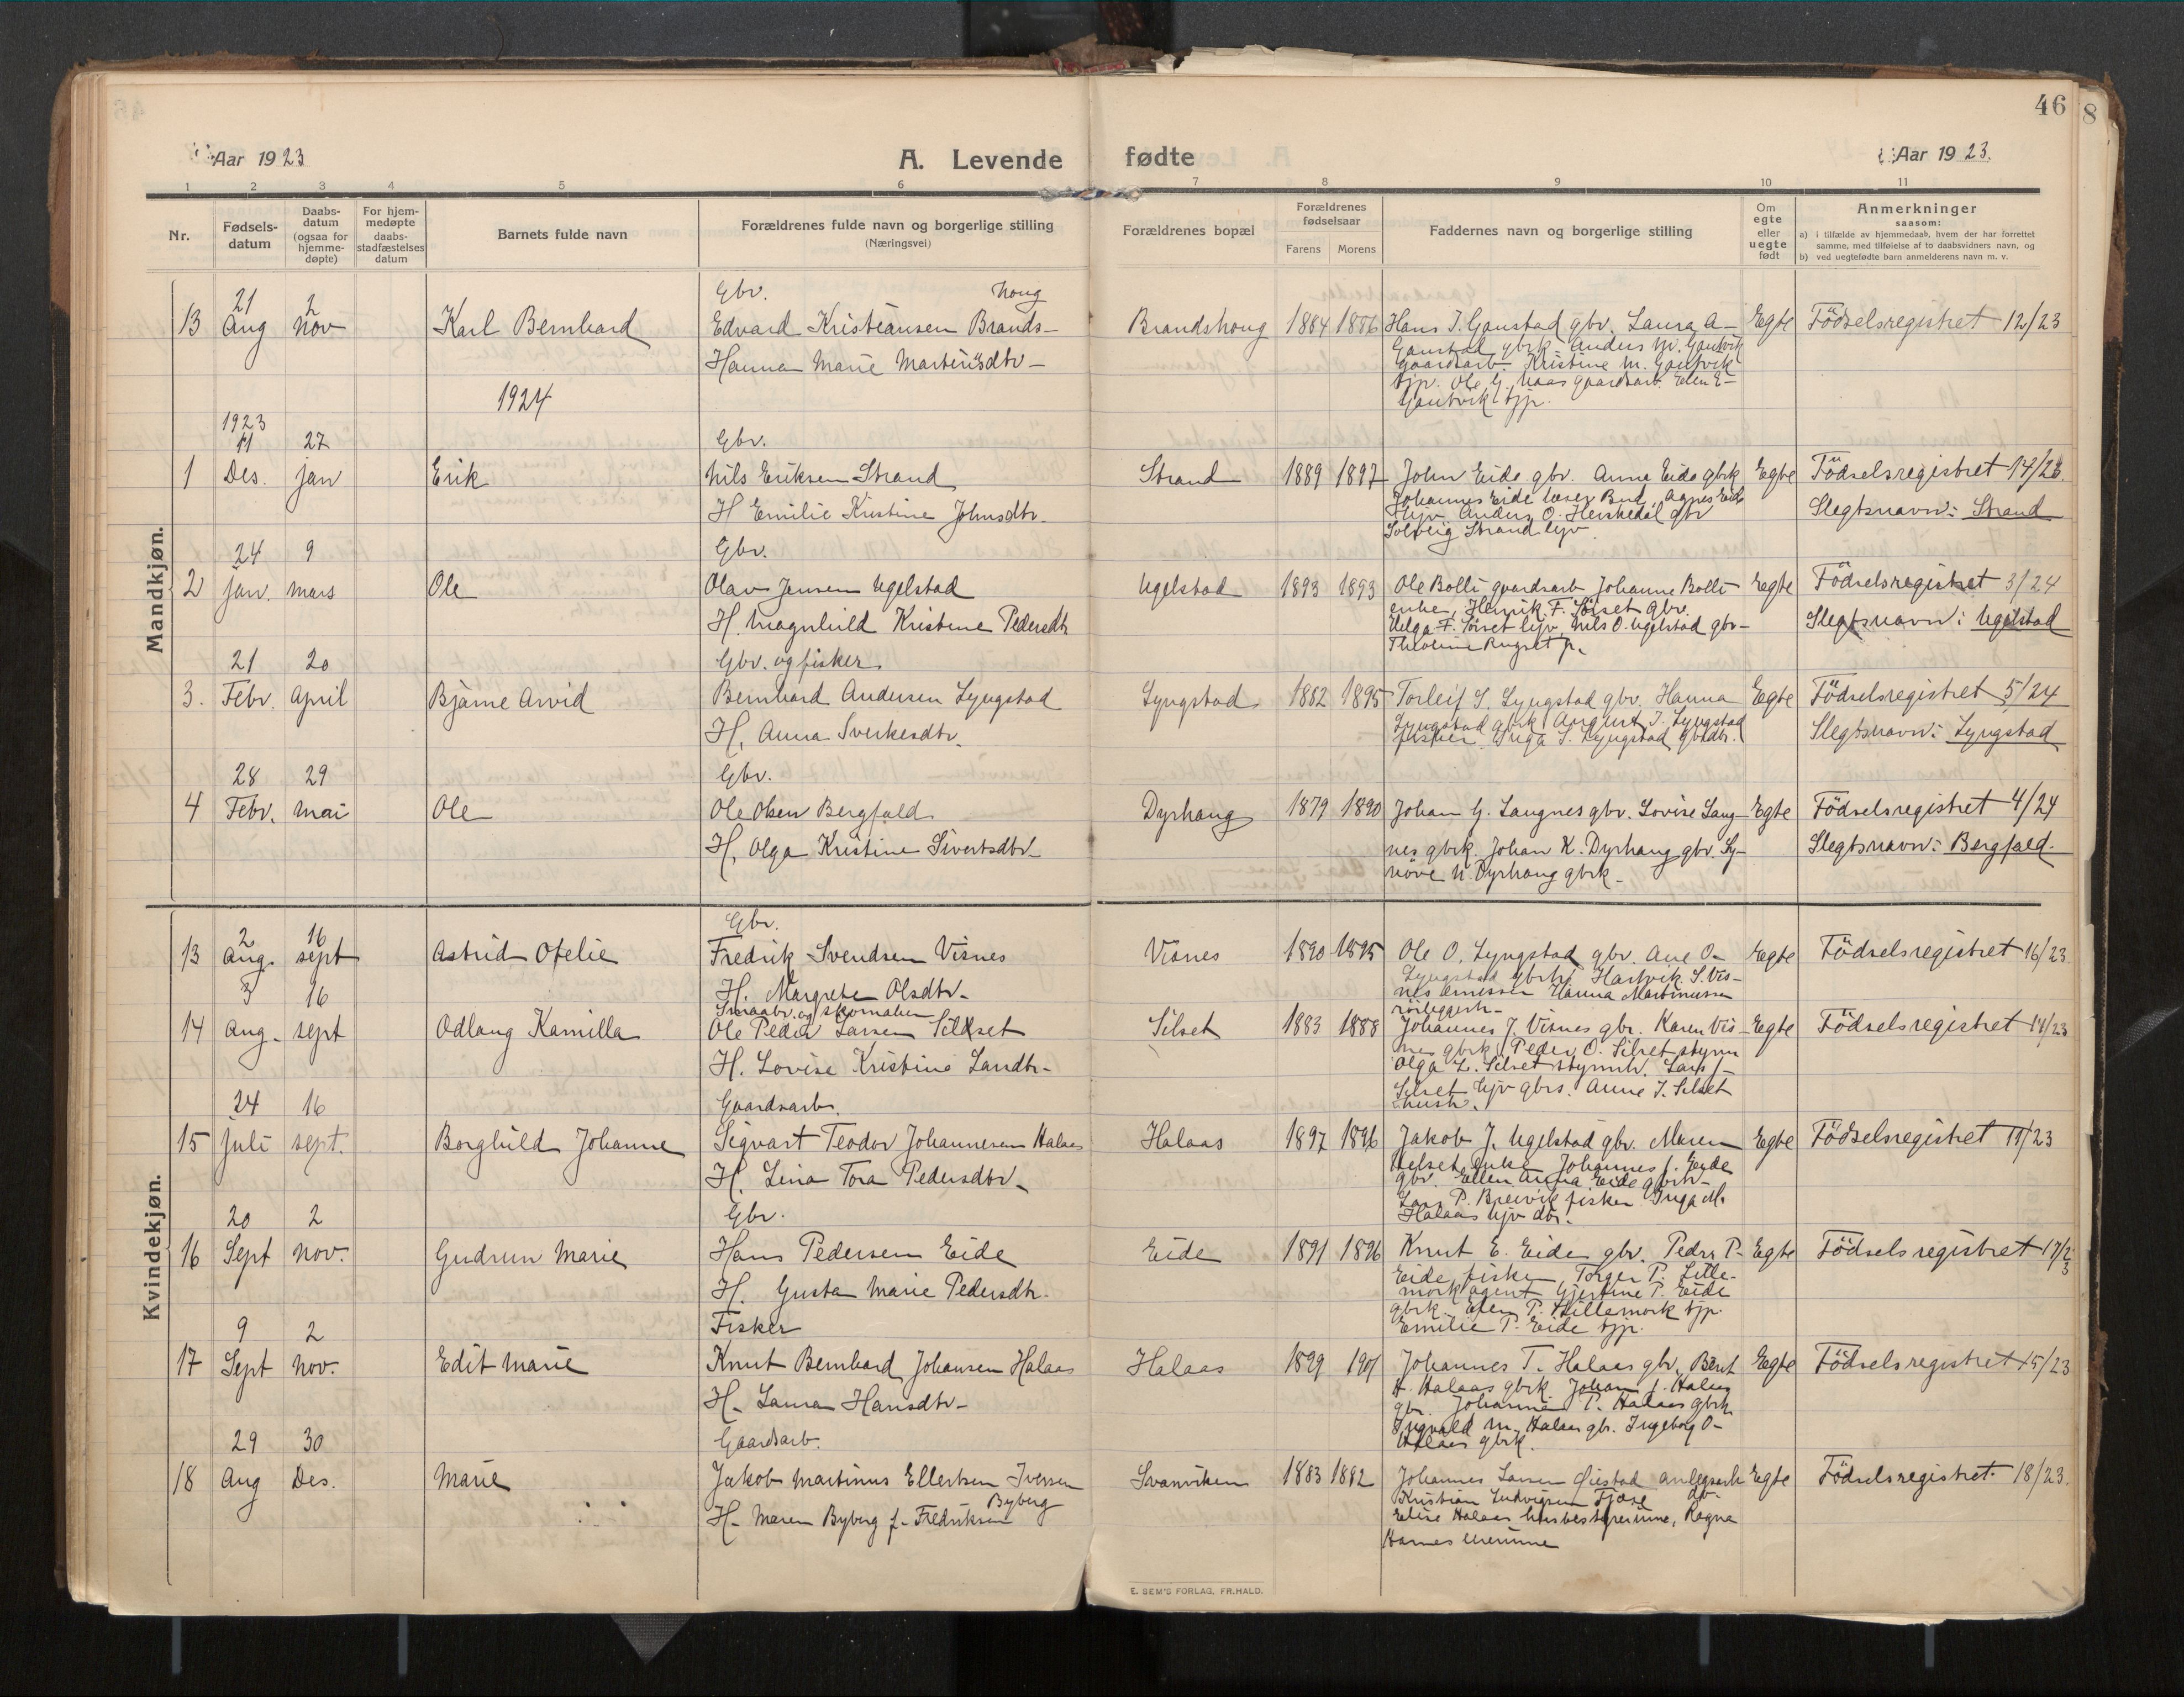 46
8
Aar 1923
A. Levende fødte
Aar 1923.
1 2 3 4 5 6 7 8 9 10 11
Nr.
Fødsels-
datum
Daabs-
datum
(ogsaa for
hjemme-
døpte)
For hjem-
medøpte
daabs-
stadfæstelses
datum
Barnets fulde navn
Forældrenes fulde navn og borgerlige stilling
(Næringsvei)
Forældrenes bopæl
Forældrenes
fødselsaar
Farens Morens
Faddernes navn og borgerlige stilling
Om
egte
eller
uegte
født
Anmerkninger
saasom:
a) i tilfælde av hjemmedaab, hvem der har forrettet
samme, med tilføielse af to daabsvidners navn, og
b) ved uegtefødte barn anmelderens navn m. v.
Mandkjøn.
21 2 Gbr. houg
13 Aug Nov Karl Bernhard Edvard Kristiansen Brands- Brandshoug 1884 1886 Hans J. Gaustad gbr. Laura A- Egte Födselsregistret 12/23
Gaustad gbrk Anders M. Gautvik
Hanna Marie Martinsdtr- Gaardsarb. Kristine M. Gautvik
tjp. Ole G. Naas gaardsarb. Elen E-
Gautvik tjp.
1924
1923
11 27 Gbr.
1 Des. jan Erik Nils Eriksen Strand Strand 1889 1897 John Eide gbr. Anne Eide gbrk Egte Födselsregistret 14/23.
Johannes Eide Bud, Agnes Eide
H Emilie Kristine Johnsdtr. hjv Anders O. Herskedal gbr Slegtsnavn: Strand
Solveig Strand hjv
24 9 Gbr.
2 jan. mars Ole Olav Jensen Ugelstad Ugelstad 1893 1893 Ole Bolli gaardsarb Johanne Bolli- Egte Födselsregistret 3/24
enke, Henrik F. Sørset gbr.
H. Magnhild Kristine Pedersdtr Helga F. Sörset hjv Nils O. Ugelstad gbr- Slegtsnavn: Ugelstad
21 20 Gbr. og fisker
3. Febr. April Bjarne Arvid Bernhard Andersen Lyngstad Lyngstad 1882 1895 Torleif S. Lyngstad gbr. Hanna Egte Födselsregistret 5/24
Lyngstad gbrk August J. Lyngstad
H. Anna Sverkesdtr. fisker Inga S. Lyngstad gbrdtr. Slegtsnavn: Lyngstad
28 29 Gbr.
4 Febr. mai Ole Ole Olsen Bergfald Dyrhaug 1879 1890 Johan G. Langnes gbr. Lovise Lang- Egte Födselsregistret 4/24
H. Olga Kristine Sivertsdtr- nes gbrk. Johan K. Dyrhaug gbr. Sy- Slegtsnavn: Bergfald.
növe N. Dyrhaug gbrk-
Kvindekjøn.
2 16 Gbr.
13 Aug. sept Astrid Ofelie Fredrik Svendsen Visnes Visnes 1890 1895 Ole O. Lyngstad gbr. Ane O- Egte Födselsregistret 16/23.
Lyngstad gbrk Hartvik S. Vis-
H. Margrete Olsdtr- nes Hanna Martinussen
3 16 Smaabr. og skomaker
14 Aug- sept Odlaug Kamilla Ole Peder Larsen Silset Silset 1883 1888 Johannes J. Visnes gbr. Karen Vis- Egte Födselsregistret 14/23
nes gbrk Peder O. Silset styrm
H. Lovise Kristine Larsdtr- Olga L. Silset styrmk. Lars J-
Silset hjv gbrs. Anne J. Silset
hustr.
24 16 Gaardsarb.
15 Juli sept. Borghild Johanne Sigvart Teodor Johannesen Halaas Halaas 1897 1896 Jakob J. Ugelstad gbr. Maren Egte Födselsregistret 11/23
Helset enke Johannes J. Eide
H. Lina Tora Pedersdtr- gbr. Ellen Anna Eide gbrk-
Lars P. Breivik fisker Inga M.
Halaas hjv dtr.
20 2 Gbr.
16 Sept Nov. Gudrun Marie Hans Pedersen Eide Eide 1891 1896 Knut E. Eide gbr. Peder P- Egte Födselsregistret 17/23
Eide fisker, Torger P. Lille-
H. Gusta Marie Pedersdtr. mork agent Gjertine P. Eide
gbrk. Elen P. Lillemork tjp.
Emilie P. Eide tjp.
9 2 Fisker
17 Sept Nov. Edit Marie Knut Bernhard Johansen Halaas Halaas 1899 1901 Johannes T. Halaas gbr, Berit Egte Födselsregistret 15/23
H. Halaas gbrk Johan J. Halaas
H- Laura Hansdtr- gbr. Johanna P. Halaas gbrk
Ingvald M. Halaas gbr. Ingeborg O-
Halaas gbrk.
29 30 Gaardsarb.
18 Aug Des. Marie Jakob Martinus Ellertsen Iversen Svanviken 1883 1882 Johannes Larsen Øiestad Egte Födselsregistret 18/23.
Byberg Kristian Ludvigsen Fjære do-
H- Maren Byberg f- Fredriksen Elise Halaas husbestyrerinne, Ragna
Hames lærerinne
E. SEM'S FORLAG, FR.HALD.